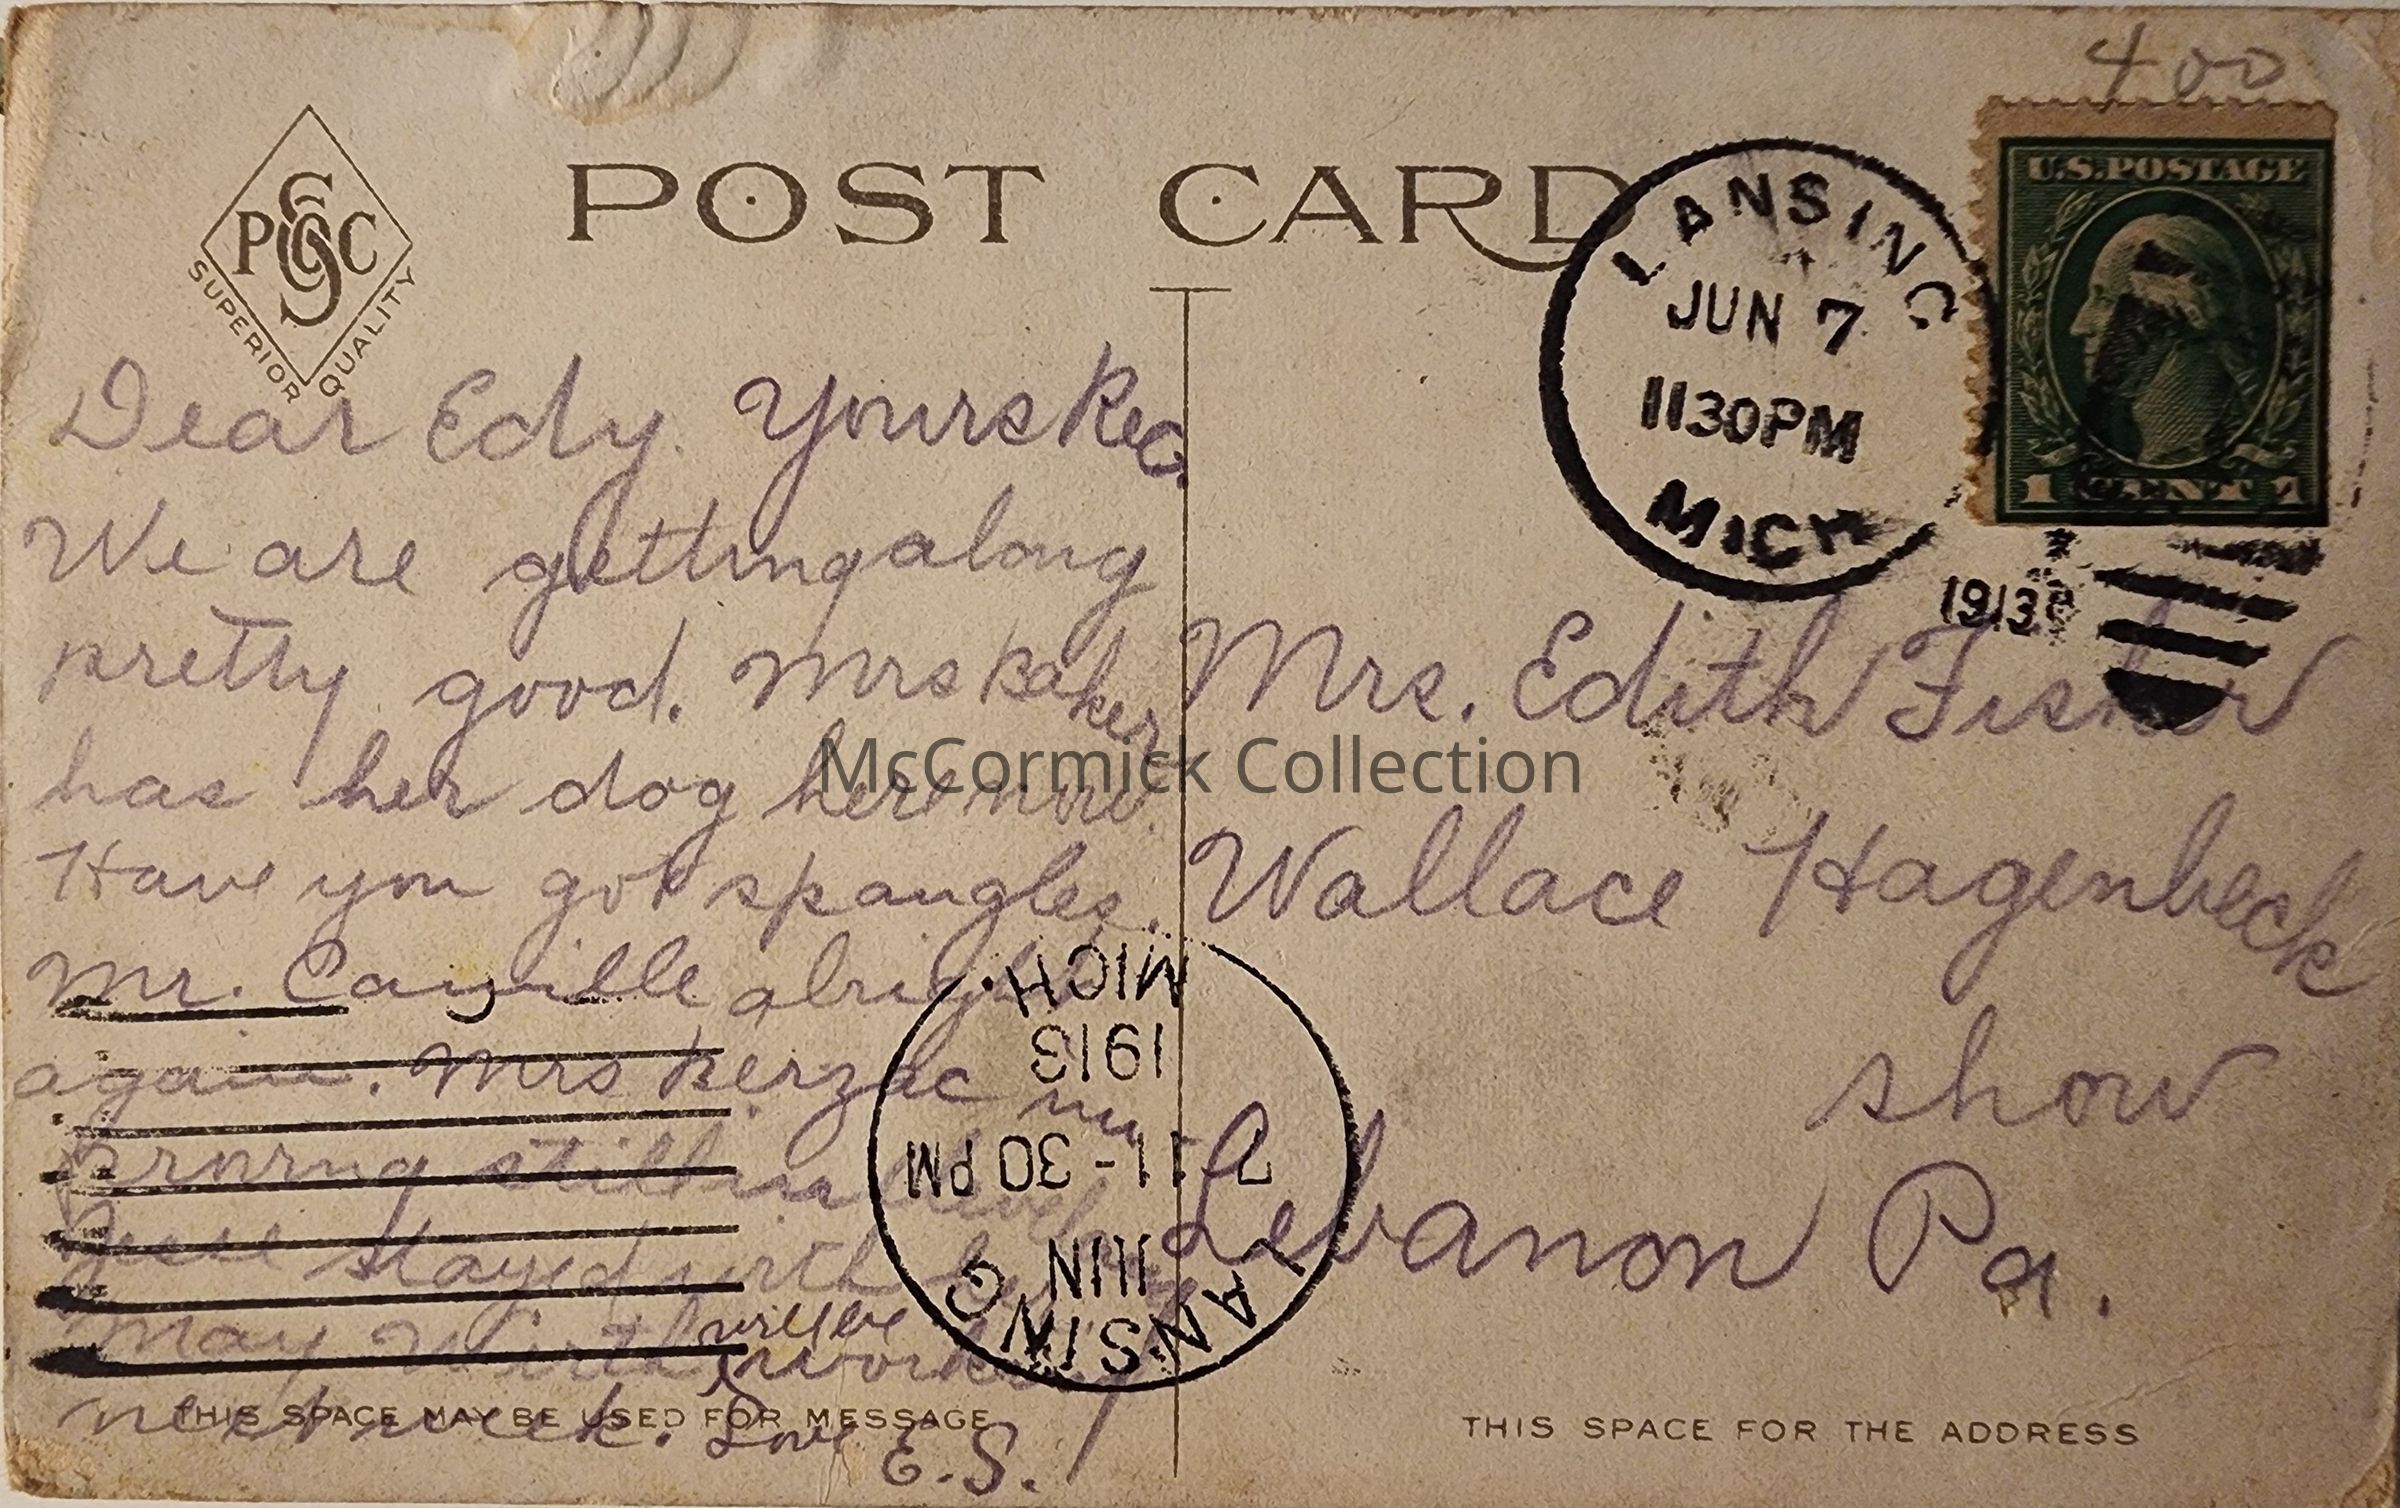 400
POST CARD
PSCC
SUPERIOR QUALITY
U.S. POSTAGE
1 CENT 1
LANSING
JUN 7
1130PM
MICH
1913
Dear Edy. Yours Rec.
We are getting along
pretty good. Mrs Baker
has her dog here now.
Have you got spangles.
Mr. alright
again. Mrs
still in
Jesse stayed with
May Wirth will be working
next week. Love E.S.
Mrs. Edith Fisher
Wallace Hagenbeck
show
Lebanon Pa.
MICH.
1913
7 11-30 PM
JUN
LANSING
McCormick Collection
THIS SPACE MAY BE USED FOR MESSAGE
THIS SPACE FOR THE ADDRESS